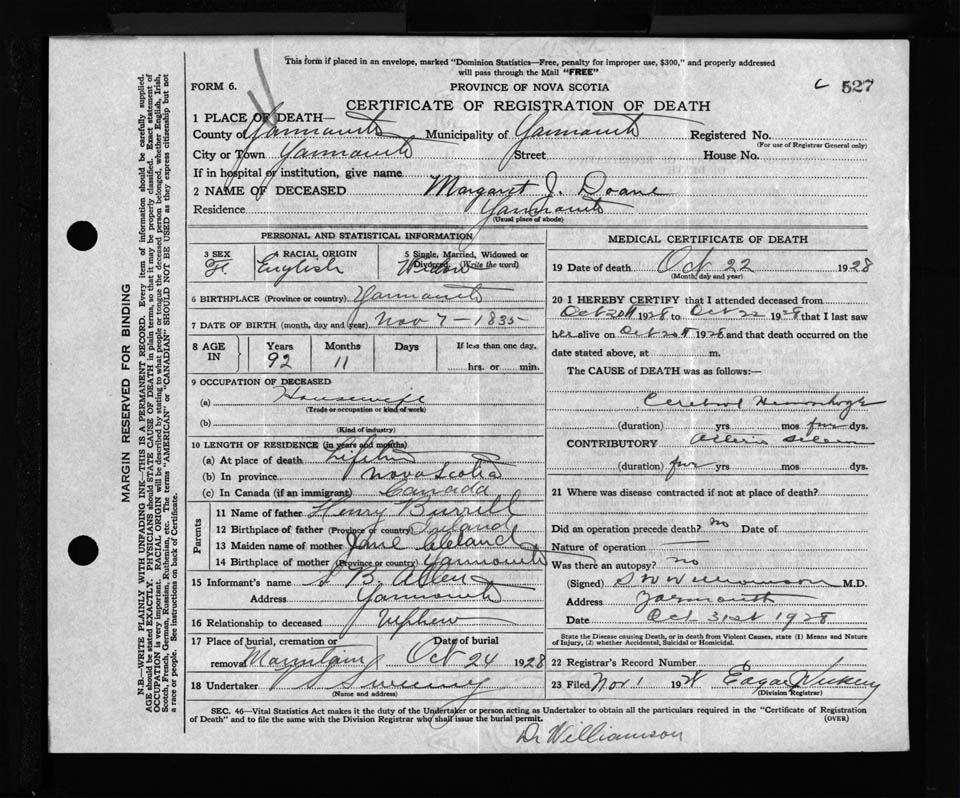 This form if placed in an envelope, marked "Dominion Statistics—Free, penalty for improper use, $300," and properly addressed
will pass through the Mail "FREE"
FORM 6.
PROVINCE OF NOVA SCOTIA
527
CERTIFICATE OF REGISTRATION OF DEATH
1 PLACE OF DEATH—
County of Yarmouth Municipality of Yarmouth Registered No.
(For use of Registrar General only)
City or Town Yarmouth Street House No.
If in hospital or institution, give name
2 NAME OF DECEASED Margaret J. Doane
Residence Yarmouth
(Usual place of abode)
PERSONAL AND STATISTICAL INFORMATION
3 SEX 4 RACIAL ORIGIN 5 Single, Married, Widowed or
Divorced (Write the word)
F. English
6 BIRTHPLACE (Province or country) Yarmouth
7 DATE OF BIRTH (month, day and year) Nov 7 - 1835
8 AGE IN Years Months Days If less than one day,
92 11 hrs. or min.
9 OCCUPATION OF DECEASED
(a) Housewife
(Trade or occupation or kind of work)
(b)
(Kind of industry)
10 LENGTH OF RESIDENCE (in years and months)
(a) At place of death Lifetime
(b) In province Nova Scotia
(c) In Canada (if an immigrant) Canada
Parents
11 Name of father Henry Burrell
12 Birthplace of father (Province or country)
13 Maiden name of mother Jane Cleland
14 Birthplace of mother (Province or country) Yarmouth
15 Informant's name B. Allen
Address Yarmouth
16 Relationship to deceased Nephew
17 Place of burial, cremation or Date of burial
removal Mountain Oct 24 1928
18 Undertaker Sweeny
(Name and address)
MEDICAL CERTIFICATE OF DEATH
19 Date of death Oct 22 1928
(Month, day and year)
20 I HEREBY CERTIFY that I attended deceased from
Oct 20th 1928 to Oct 22 1928 that I last saw
her alive on Oct 20th 1928 and that death occurred on the
date stated above, at m.
The CAUSE of DEATH was as follows:—
Cerebral Hemorrhage
(duration) yrs mos few dys.
CONTRIBUTORY
(duration) few yrs mos dys.
21 Where was disease contracted if not at place of death?
Did an operation precede death? no Date of
Nature of operation
Was there an autopsy? no
(Signed) S W Williamson M.D.
Address Yarmouth
Date Oct 31st 1928
State the Disease causing Death, or in death from Violent Causes, state (1) Means and Nature
of Injury, (2) whether Accidental, Suicidal or Homicidal.
22 Registrar's Record Number
23 Filed Nov 1 1928 Edgar
(Division Registrar)
SEC. 46—Vital Statistics Act makes it the duty of the Undertaker or person acting as Undertaker to obtain all the particulars required in the "Certificate of Registration
of Death" and to file the same with the Division Registrar who shall issue the burial permit. (OVER)
Dr Williamson
MARGIN RESERVED FOR BINDING
N.B.—WRITE PLAINLY WITH UNFADING INK—THIS IS A PERMANENT RECORD. Every item of information should be carefully supplied.
AGE should be stated EXACTLY. PHYSICIANS should STATE CAUSE OF DEATH in plain terms, so that it may be properly classified. Exact statement of
OCCUPATION is very important. RACIAL ORIGIN will be described by stating to what people or tongue the deceased person belonged, whether English, Irish,
Scotch, French, German, Russian, Ruthenian, etc. The terms "AMERICAN" or "CANADIAN" SHOULD NOT BE USED as they express citizenship but not
a race or people. See instructions on back of Certificate.